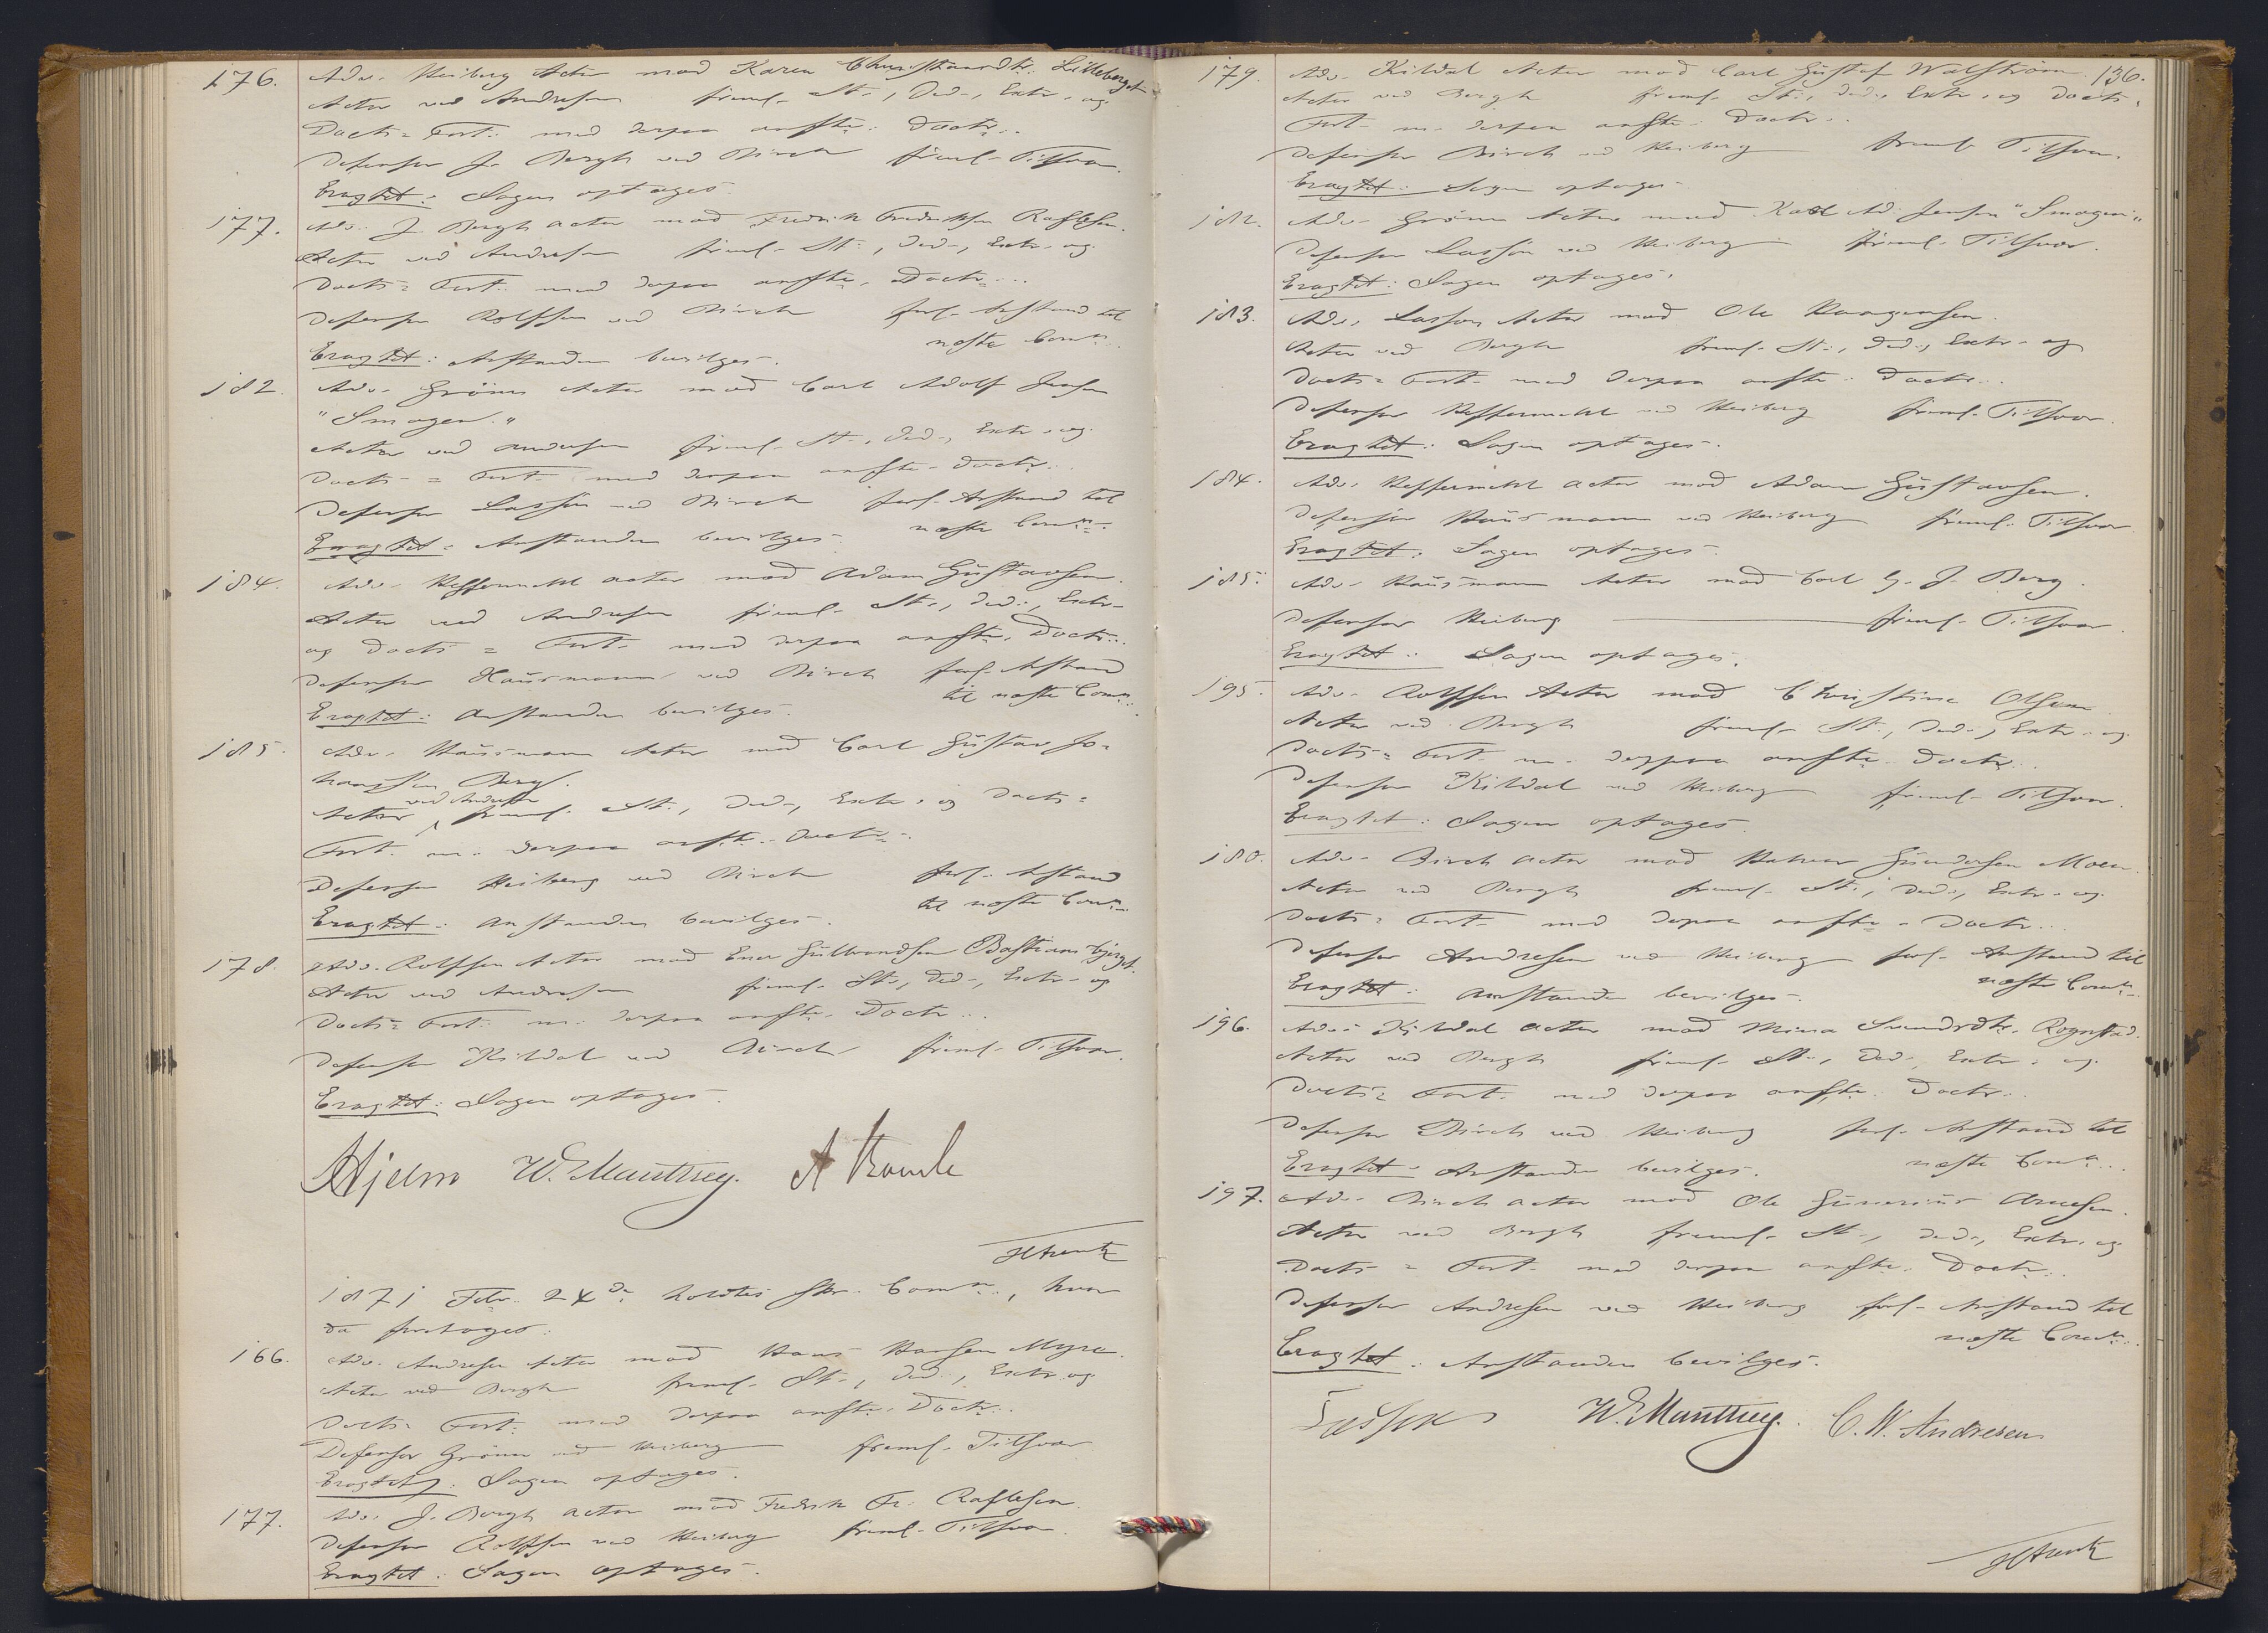 176. Adv. Heiberg Actor mod Karen Christiansdtr. Lilleberget
Actor ved Andresen freml. St., Ded., Extr. og
Docts = Fort. med derpaa anførte Doctr.
Defensor J. Bergh ved Birch freml. Tilsvar.
Eragtet: Sagen optages.
177. Adv. J. Bergh Actor mod Fredrik Fredriksen Raflesen.
Actor ved Andresen freml. St., Ded., Extr. og
Docts = Fort. med derpaa anførte Doctr.
Defensor Rolfsen ved Birch forl. Anstand til
næste
Eragtet: Anstanden bevilges.
182. Adv. Grönn Actor mod Carl Adolf Jensen
"Smagen."
Actor ved Andresen freml. St., Ded., Extr. og
Docts = Fort. med derpaa anførte Doctr.
Defensor Lasson ved Birch forl. Anstand til
næste
Eragtet: Anstanden bevilges.
184. Adv. Heffermehl Actor mod Adam Gustavsen.
Actor ved Andresen freml. St., Ded., Extr.
og Docts = Fort. med derpaa anførte Doctr.
Defensor Hausmann ved Birch forl. Anstand
til næste
Eragtet: Anstanden bevilges.
185. Adv. Hausmann Actor mod Carl Gustav Jo=
hansen Berg.
Actor ved Andresen freml. St., Ded., Extr. og Docts=
Fort. m. derpaa anførte Doctr.
Defensor Heiberg ved Birch forl. Anstand
til næste
Eragtet: Anstanden bevilges.
178. Adv. Rolfsen Actor mod Gulbrandsen
Actor ved Andresen freml. St., Ded., Extr. og
Docts = Fort. m. derpaa anførte Doctr.
Defensor Kildal ved Birch freml. Tilsvar.
Eragtet: Sagen optages.
Hjelm W. E. Manthey.
1871 Febr. 24de holdtes hvor
da foretoges:
166. Adv. Andresen Actor mod Hans Hansen Myre.
Actor ved Bergh freml. St., Ded., Extr. og
Docts = Fort. med derpaa anførte Doctr.
Defensor Grönn ved Heiberg freml. Tilsvar
Eragtet: Sagen optages.
177. Adv. J. Bergh Actor mod Fredrik Fr. Raflesen
Defensor Rolfsen ved Heiberg freml. Tilsvar
Eragtet: Sagen optages.
136.
179. Adv. Kildal Actor mod Carl Gustaf Walström.
Actor ved Bergh freml. St., Ded., Extr. og Docts=
Fort. m. derpaa anførte Doctr.
Defensor Birch ved Heiberg freml. Tilsvar.
Eragtet: Sagen optages.
182. Adv. Grönn Actor mod Karl Ad. Jensen "Smagen"
Defensor Lasson ved Heiberg freml. Tilsvar.
Eragtet: Sagen optages.
183. Adv. Lasson Actor mod Ole Haagensen.
Actor ved Bergh freml. St., Ded., Extr. og
Docts = Fort. med derpaa anførte Doctr.
Defensor Heffermehl ved Heiberg freml. Tilsvar.
Eragtet: Sagen optages.
184. Adv. Heffermehl Actor mod Adam Gustavsen.
Defensor Hausmann ved Heiberg freml. Tilsvar
Eragtet: Sagen optages.
185. Adv. Hausmann Actor mod Carl G. J. Berg.
Defensor Heiberg freml. Tilsvar
Eragtet: Sagen optages.
195. Adv. Rolfsen Actor mod Christine Olsen
Actor ved Bergh freml. St., Ded., Extr. og
Docts = Fort. m. derpaa anførte Doctr.
Defensor Kildal ved Heiberg freml. Tilsvar.
Eragtet: Sagen optages.
180. Adv. Birch Actor mod Halvor Gundersen Moen.
Actor ved Bergh freml. St., Ded., Extr. og
Docts = Fort. med derpaa anførte Doctr.
Defensor Andresen ved Heiberg forl. Anstand til
næste
Eragtet: Anstanden bevilges.
196. Adv. Kildal Actor mod Mina Rognstad.
Actor ved Bergh freml. St., Ded., Extr. og
Docts = Fort. med derpaa anførte Doctr.
Defensor Birch ved Heiberg forl. Anstand til
næste
Eragtet: Anstanden bevilges.
197. Adv. Birch Actor mod Ole Gunerius Arnesen.
Actor ved Bergh freml. St., Ded., Extr. og
Docts = Fort. med derpaa anførte Doctr.
Defensor Andresen ved Heiberg forl. Anstand til
næste
Eragtet: Anstanden bevilges.
W. E. Manthey. C. W. Andresen